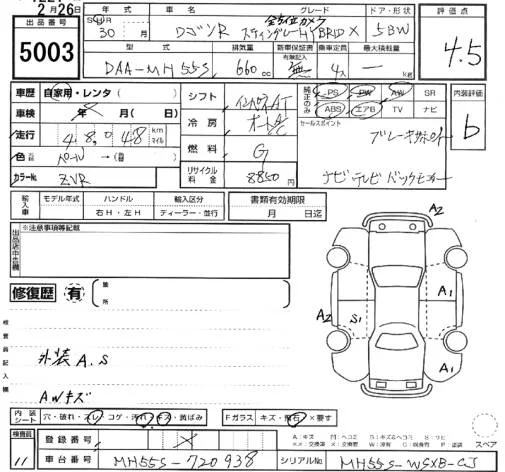 2月26日
出品番号
5003
年式 グレード ドア・形状 評価点
30年 月 ワゴンR 全方位カメラ
スティングレーHYBRID X 5BW
4.5
型式 排気量 新車保証書 乗車定員 最大積載量
有無記入
DAA-MH55S 660cc 無 4人 — kg
車歴 自家用・レンタ
車検 年 月( 日)
走行 4,8,048 km マイル
色 パール →( )
カラーNo. ZVR
シフト インパネAT
冷房 オートA/C
燃料 G
リサイクル料金 8850円
純正のみ PS PW AW SR
ABS エアB TV ナビ
内装評価
b
セールスポイント
ブレーキサポート
ナビテレビバックモニター
輸入車 モデル年式 ハンドル 輸入区分
右H・左H ディーラー・並行
書類有効期限
月 日迄
出品店申告欄
※注意事項等記載
修復歴 有 箇所
検査員記入欄
外装A.S
AWキズ
A2
A1
A2 S1
A1
内装シート 穴・破れ・スレ・コゲ・汚れ・キズ・黄ばみ Fガラス キズ・飛石・×要す
スペア
検査員
11
登録番号
車台番号 MH55S-720938 シリアルNo. MH55S-WSXB-CJ